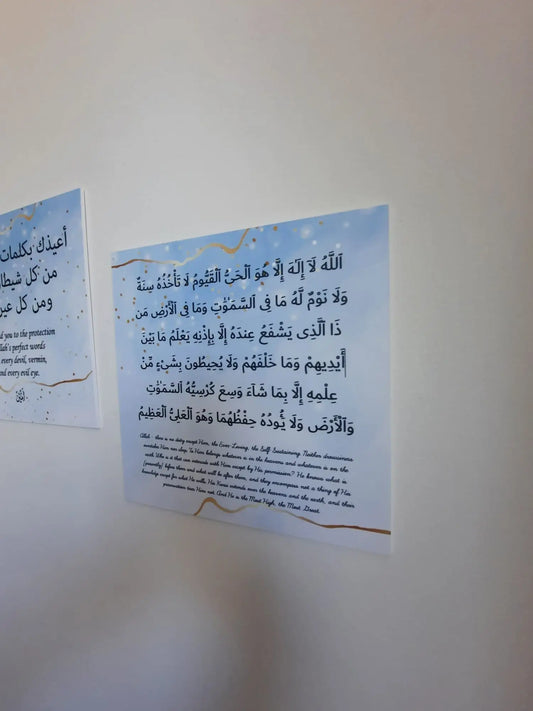 أعيذك بكلمات
من كل شيطا
ومن كل عين
d you to the protection
llah's perfect words
every devil, vermin,
nd every evil eye.
ٱللَّهُ لَآ إِلَٰهَ إِلَّا هُوَ ٱلْحَىُّ ٱلْقَيُّومُ لَا تَأْخُذُهُۥ سِنَةٌ
وَلَا نَوْمٌ لَّهُۥ مَا فِى ٱلسَّمَٰوَٰتِ وَمَا فِى ٱلْأَرْضِ مَن
ذَا ٱلَّذِى يَشْفَعُ عِندَهُۥ إِلَّا بِإِذْنِهِۦ يَعْلَمُ مَا بَيْنَ
أَيْدِيهِمْ وَمَا خَلْفَهُمْ وَلَا يُحِيطُونَ بِشَىْءٍ مِّنْ
عِلْمِهِۦٓ إِلَّا بِمَا شَآءَ وَسِعَ كُرْسِيُّهُ ٱلسَّمَٰوَٰتِ
وَٱلْأَرْضَ وَلَا يَـُٔودُهُۥ حِفْظُهُمَا وَهُوَ ٱلْعَلِىُّ ٱلْعَظِيمُ
Allah - there is no deity except Him, the Ever-Living, the Self-Sustaining. Neither drowsiness
overtakes Him nor sleep. To Him belongs whatever is in the heavens and whatever is on the
earth. Who is it that can intercede with Him except by His permission? He knows what is
(presently) before them and what will be after them, and they encompass not a thing of His
knowledge except for what He wills. His Kursi extends over the heavens and the earth, and their
preservation tires Him not. And He is the Most High, the Most Great.